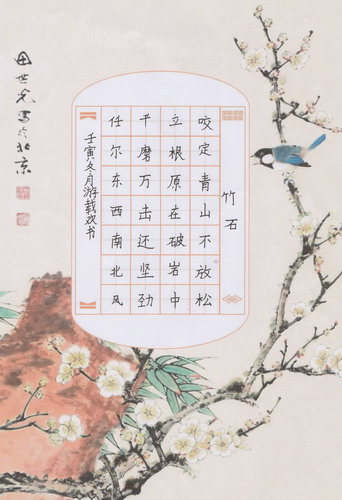 竹石
咬定青山不放松
立根原在破岩中
千磨万击还坚劲
任尔东西南北风
壬寅冬月游载欢书
田世光寫於北京